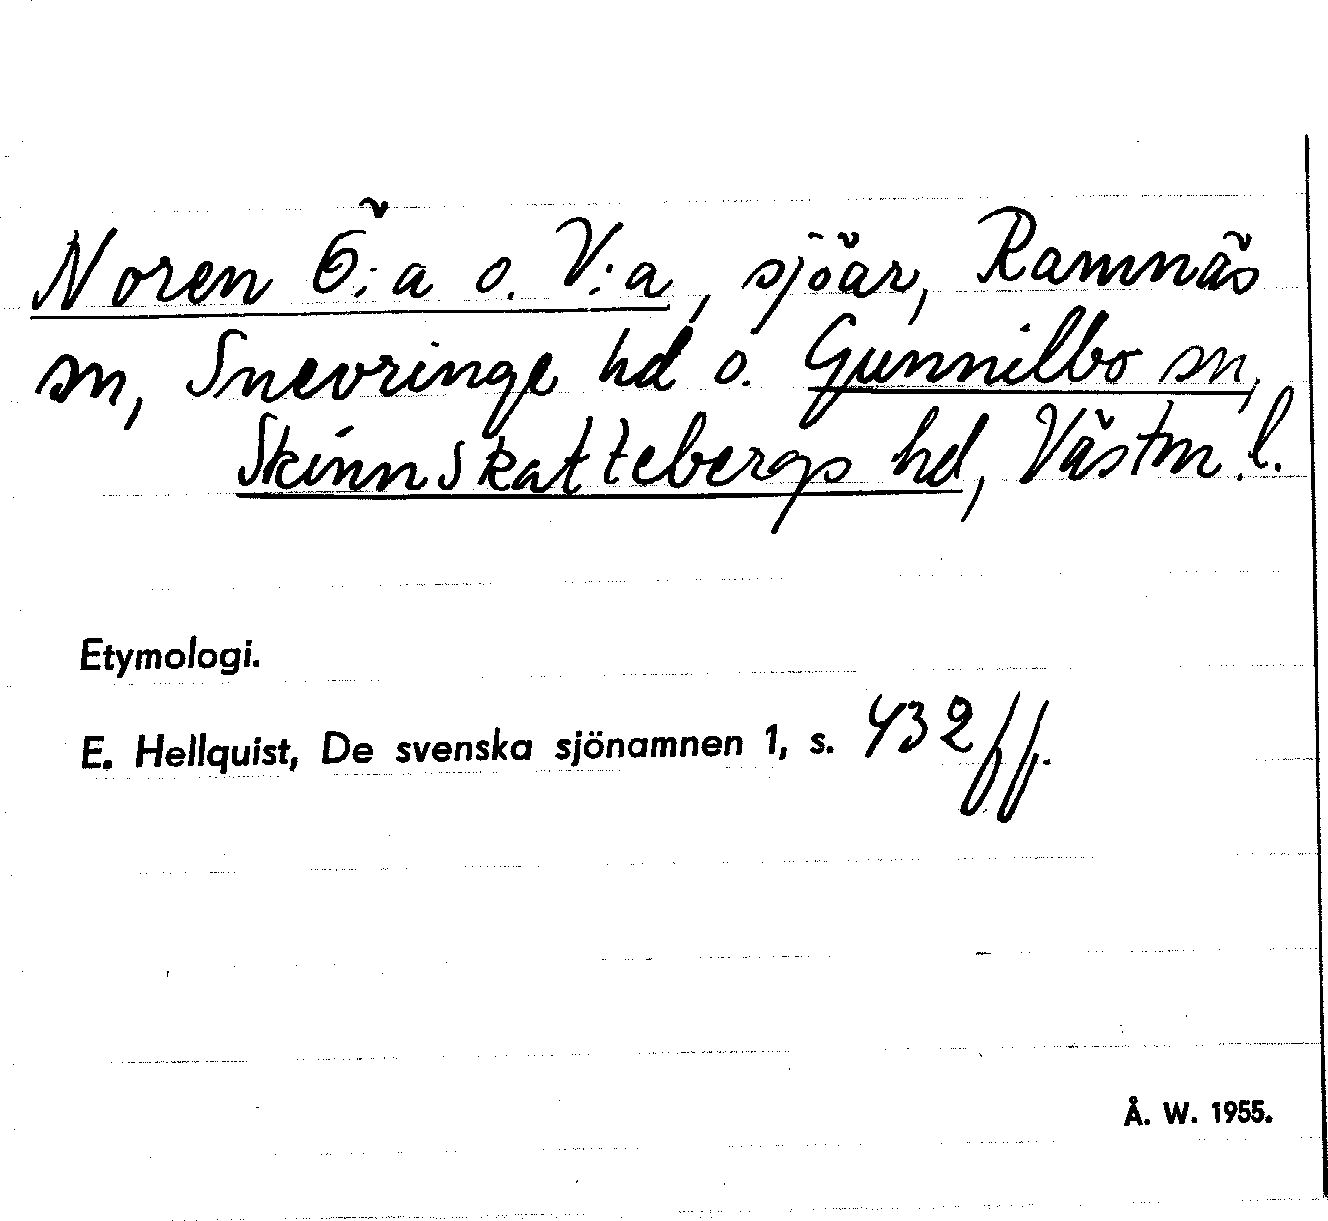 Noren Ö:a o. V:a, sjöar, Ramnäs
sn, Snevringe hd o. Gunnilbo sn,
Skinnskattebergs hd, Västm. l.
Etymologi.
E. Hellquist, De svenska sjönamnen 1, s. 432 ff.
Å. W. 1955.